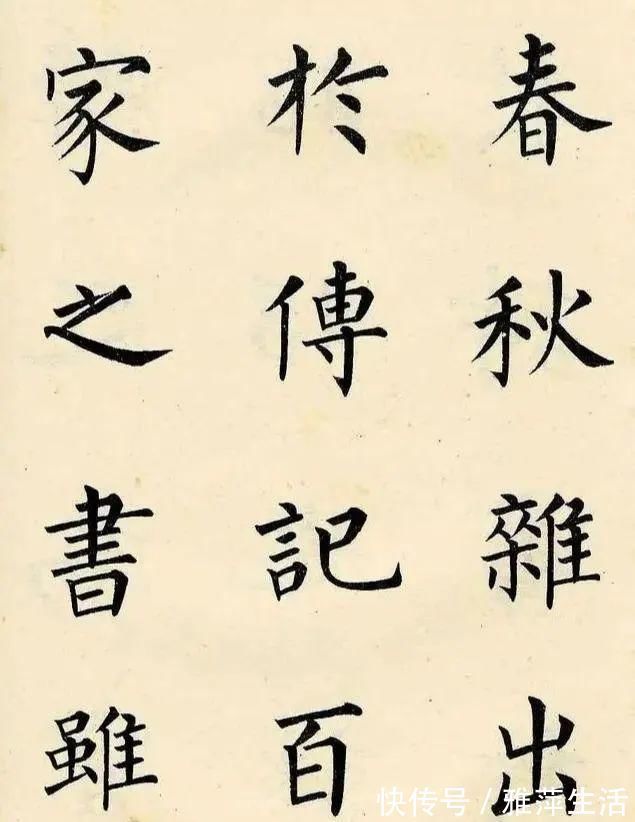 春秋雜出
於傳記百
家之書雖
快传号/雅萍生活